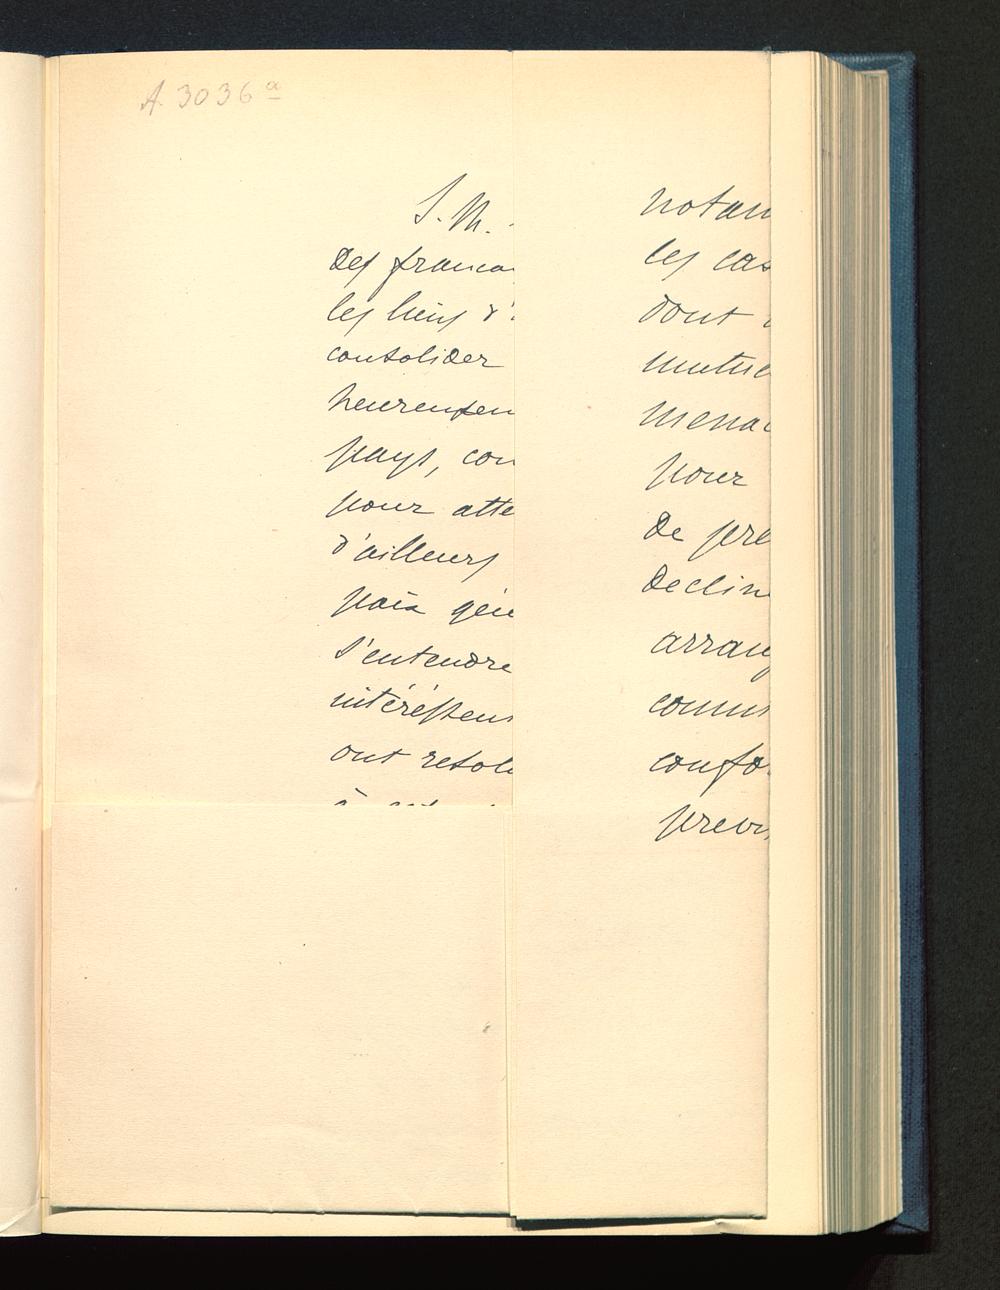 A. 3036 a
S. M.
Des françai
les liens d'
consolider
heureusem
pays, con
pour atte
d'ailleurs
paix géné
s'entendre
intéressen
ont résolu
notam
les cas
dont
mutue
menac
pour
de pré
declin
arrang
comm
confo
prévu